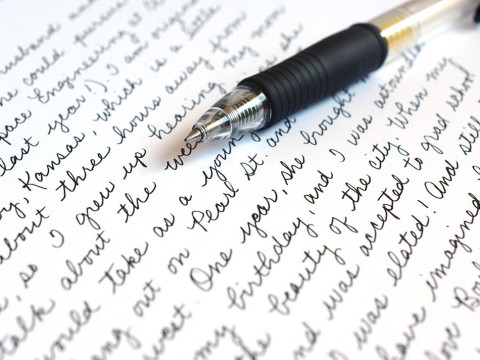 husband and
he could pursue
Engineering at
last year!). I am origin
y, Kansas, which is a little
about three hours away from
, so I grew up hearing my mom
talk about the wee she
would take as a young
ang out on Pearl St. and
west. One year, she brought
my birthday, and I was
he beauty of the city. When my
nd was accepted to grad school
I was elated! And still
have imagined